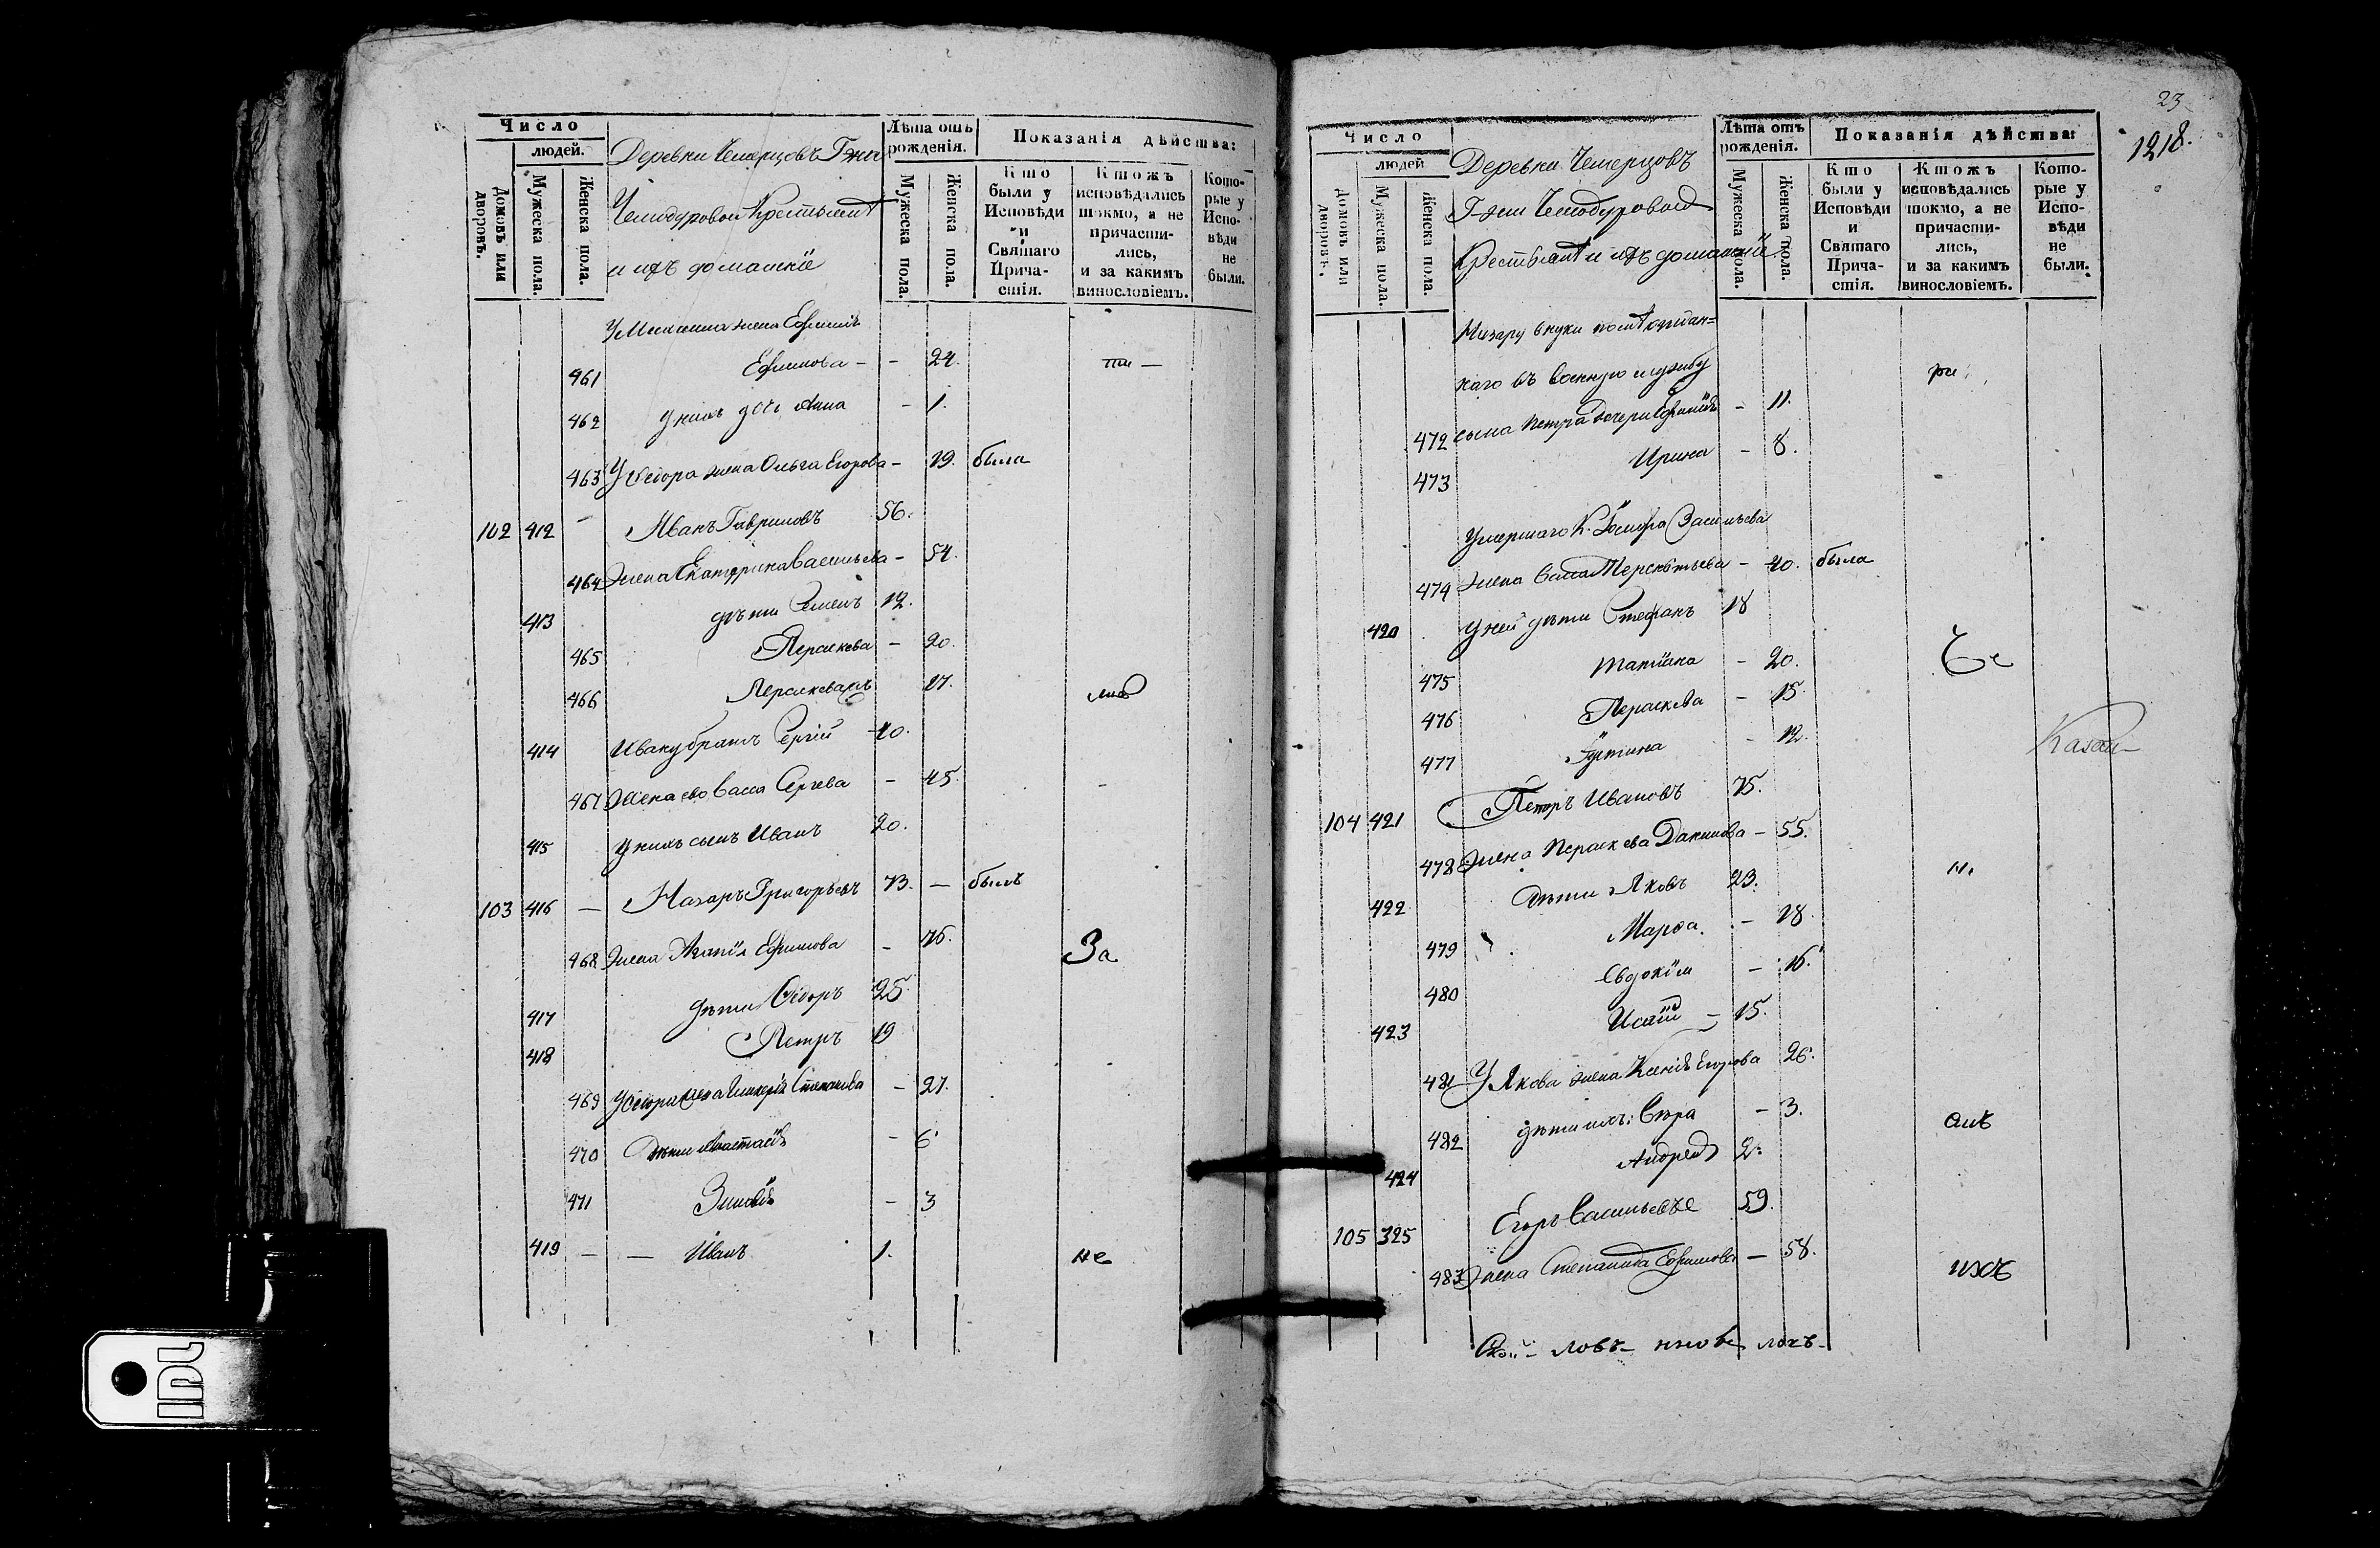 Число
людей.
Домовъ или дворовъ.
Мужеска пола.
Женска пола.
Деревни Чемерцовъ Гжи
Чемодуровой Крестьяне
и ихъ домашніе
Лѣта отъ рожденія.
Мужеска пола.
Женска пола.
Показанія дѣйства:
Кто были у Исповѣди и Святаго Причастія.
Ктожъ исповѣдались токмо, а не причастились, и за какимъ винословіемъ.
Которые у Исповѣди не были.
жена Ефимія
461 Ефимова - - 24.
462 у нихъ дочь Анна - 1.
463 У Ѳедора жена Ольга Егорова - 19. была
102 412 - Иванъ Гавриловъ 56.
464 жена Екатерина Васильева - 54.
413 дѣти Семенъ 12.
465 Параскева - 20.
466 Параскева 17.
414 Ивану братъ Сергій 40.
467 Жена его Васса Сергева - 45.
415 У нихъ сынъ Иванъ 20.
103 416 - Назаръ Григорьевъ 73. - былъ
468 жена Агапія Ефимова - 76. За
417 дѣти Ѳедоръ 25.
418 Петръ 19
469 У Ѳедора жена Степанова - 27.
470 Дѣти Анастасія - 6
471 Зиновія - 3
419 - - Иванъ 1. не
23
1218.
Число
людей
Домовъ или дворовъ.
Мужеска пола.
Женска пола.
Деревни Чемерцовъ
Г-жи Чемодуровой
Крестьяне и ихъ домашніе.
Лѣта отъ рожденія.
Мужеска пола.
Женска пола.
Показанія дѣйства:
Кто были у Исповѣди и Святаго Причастія.
Ктожъ исповѣдались токмо, а не причастились, и за какимъ винословіемъ.
Которые у Исповѣди не были.
Назару внуки отдан=
наго въ военную службу
472 сына Петра дочери Ефимія - 11.
473 Ирина - 8.
Умершаго Васильева
474 жена Васса Терентьева - 40. была
420 У ней дѣти Стефанъ 18
475 Татіана - 20.
476 Параскева - 15.
477 Іустина - 12.
104 421 Петръ Ивановъ 75.
478 жена Параскева Данилова - 55.
422 Дѣти Яковъ 23.
479 Марѳа. - 18.
480 Евдокія - 16.
423 Исаій - 15.
481 У Якова жена Ксенія Егорова 26.
482 дѣти ихъ: Вѣра - 3.
424 Андрей 2.
105 325 Егоръ Васильевъ 59.
483 жена Степанида Ефимова - 58.